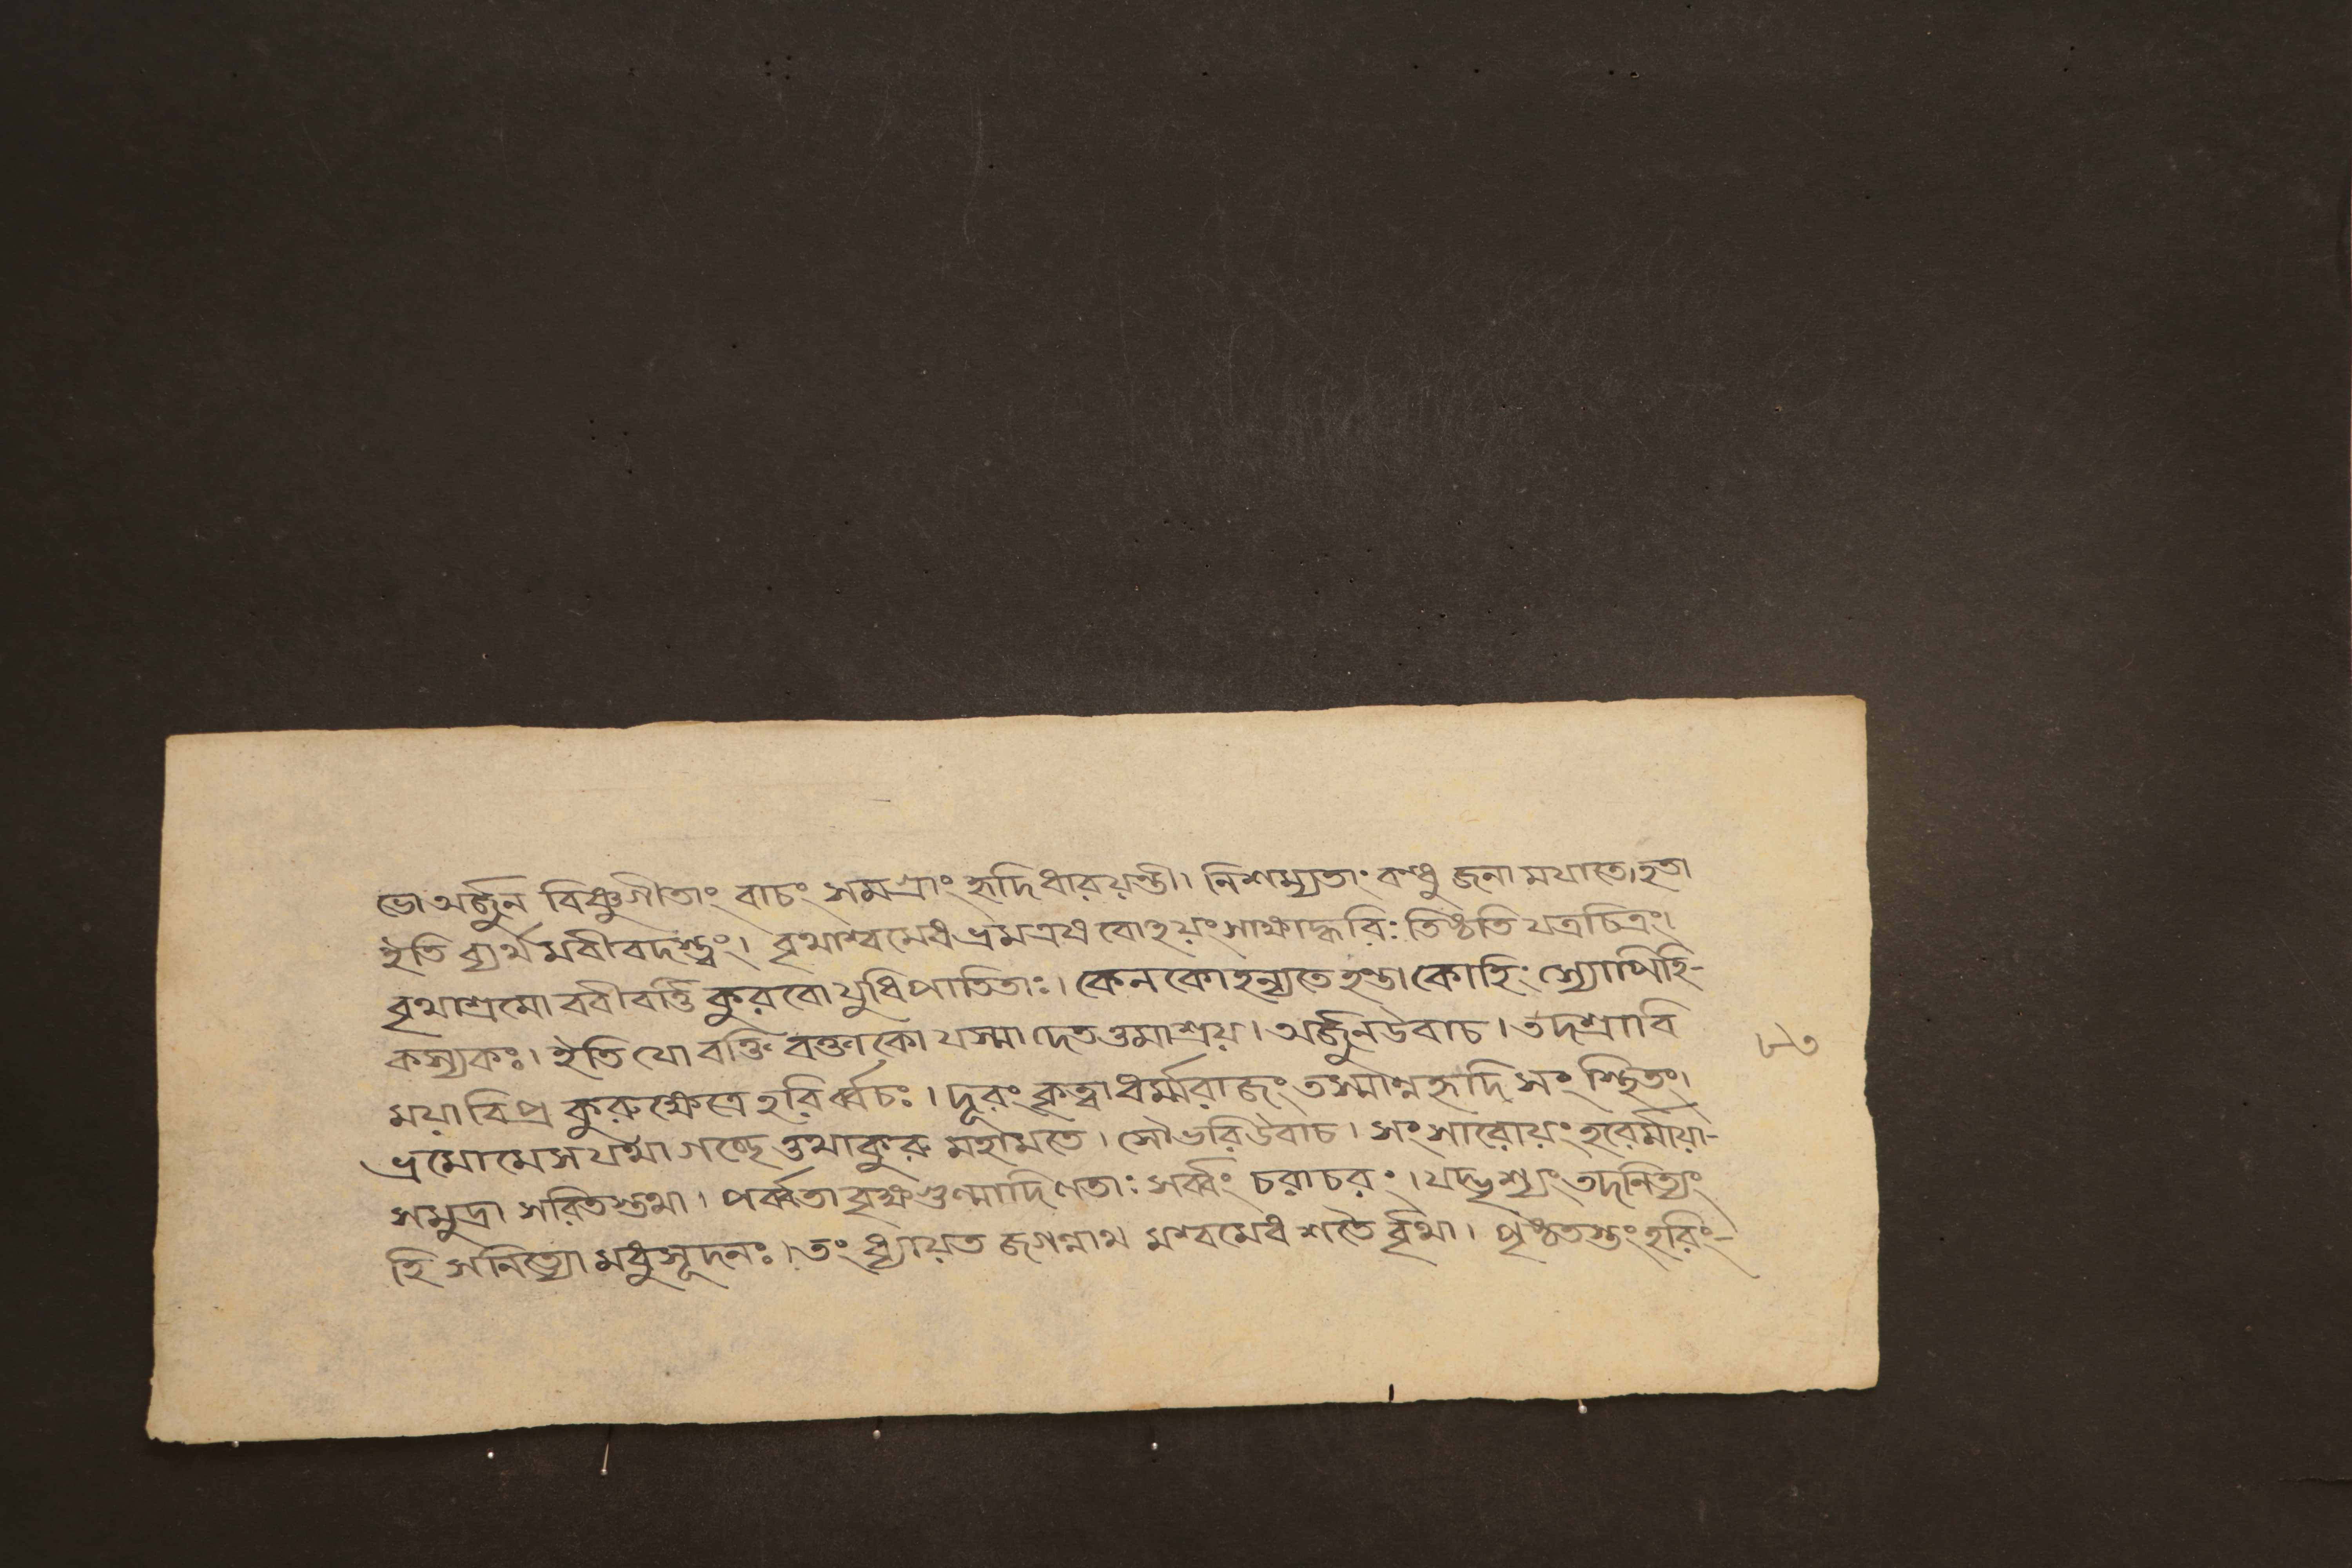 ভো অর্জ্জুন বিষ্ণুগীতাং বাচং সমগ্রাং হৃদি ধারয়ন্তী। নিশম্যতাং বন্ধু জনা ময়াতে হতা
ইতি ব্যর্থমবীবদস্ত্বং। বৃথাশ্বমেধভ্রমএষ বোহয়ং সাক্ষাদ্ধরিঃ তিষ্ঠতি যত্রচিত্রং।
বৃথাশ্রমো ববীবর্ত্তি কুরবো যুধিপাতিতাঃ। কেন কো হন্যতে হন্তা কোহিং স্যোপিহি-
কস্যকঃ। ইতি যো বক্তি বক্তা কো যস্মাদেতত্তমাশ্রয়। অর্জ্জুনউবাচ। তদশ্রাবি
ময়া বিপ্র কুরুক্ষেত্রে হরির্ব্বচঃ। দূরং কৃত্বা ধর্ম্মরাজং তস্মান্নহৃদি সংস্থিতং।
ভ্রমোমেস যথা গচ্ছে ত্তথাকুরু মহামতে। সৌভরিউবাচ। সংসারোয়ং হরের্মায়া-
সমুদ্রা সরিতস্তথা। পর্ব্বতা বৃক্ষগুল্মাদি ণতাঃ সর্ব্বং চরাচরং। যদ্দৃশ্যং তদনিত্যং
হি স নিত্যো মধুসূদনঃ। তং ধ্যায়ত জগন্নাথ মশ্বমেধ শতৈ র্বৃথা। পৃষ্ঠতস্তং হরিং-
৮৩